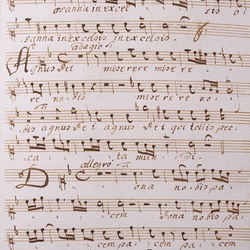 osanna in excel
sanna in excelsis in excelsis.
adagio
Agnus dei miserere misere
re nobis miserere no
bis agnus dei agnus dei qui tollis pec
ca ta mun di
allegro
Dona nobis pa
cem dona nobis pa
cem pa cem pa cem.